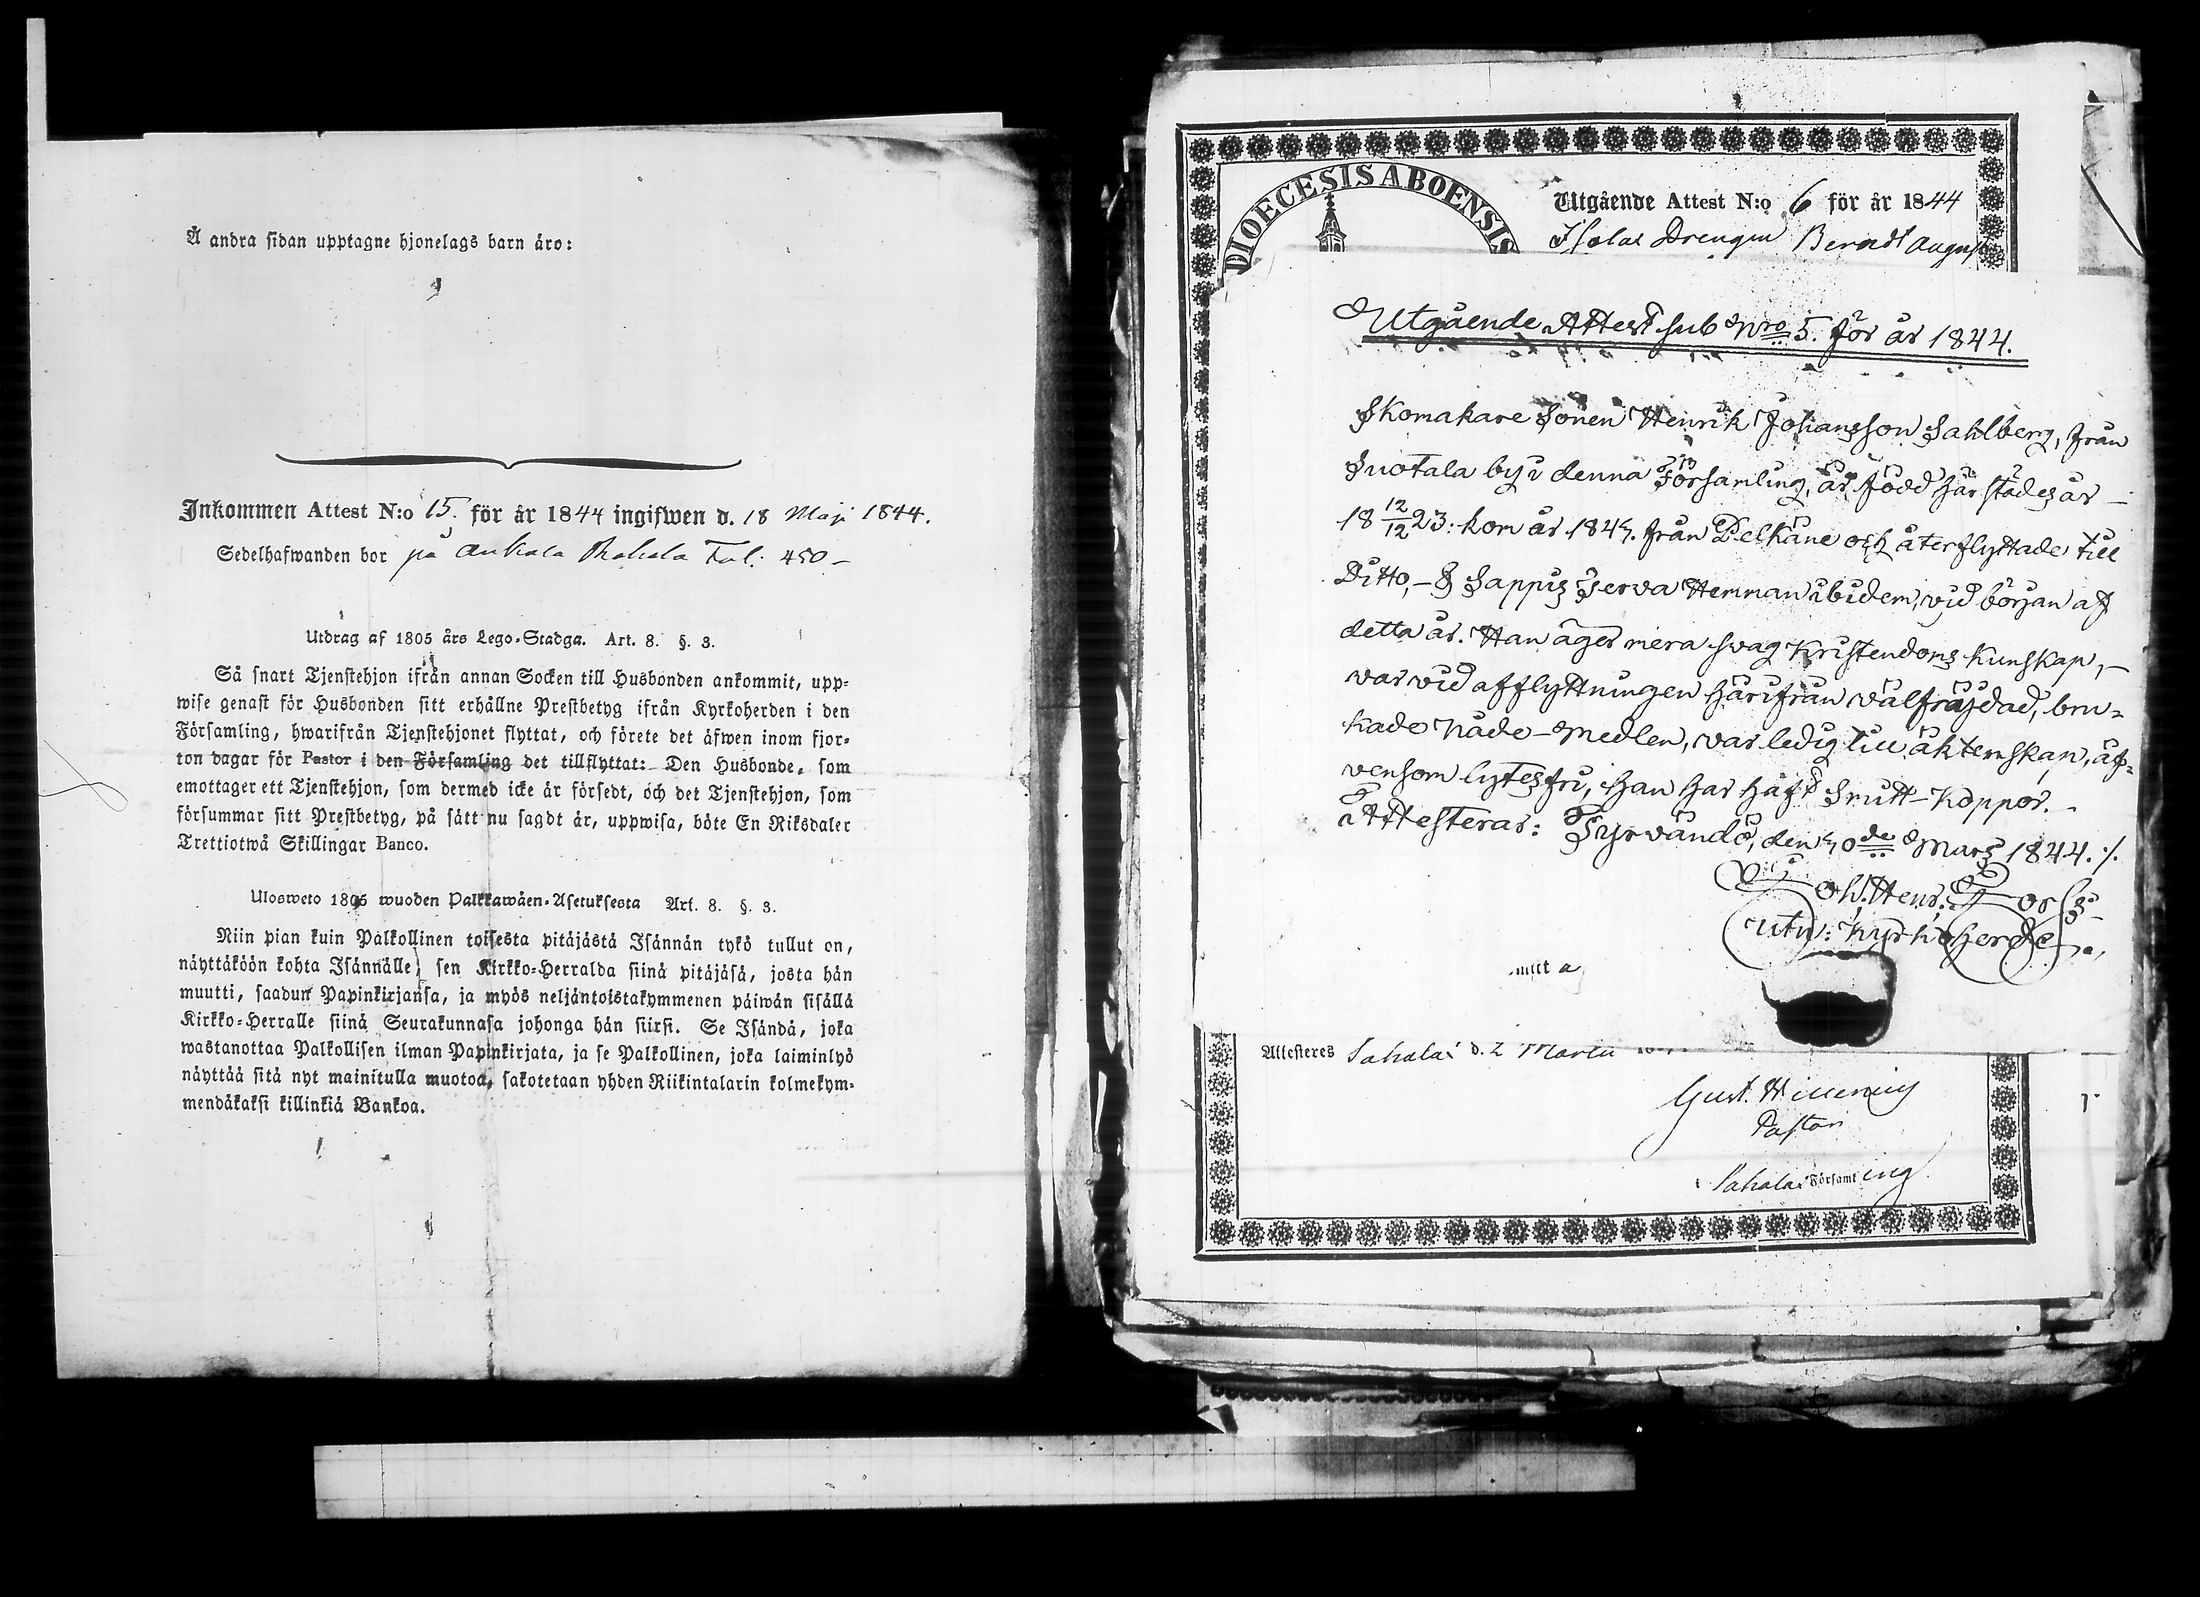 Å andra sidan upptagne hjonelags barn äro:
Inkommen Attest N:o 15. för år 1844 ingifwen d. 18 Maji 1844.
Sedelhafwanden bor på Fol. 450 –
Utdrag af 1805 års Lego-Stadga. Art. 8. §. 3.
Så snart Tjenstehjon ifrån annan Socken till Husbonden ankommit, upp-
wise genast för Husbonden sitt erhållne Prestbetyg ifrån Kyrkoherden i den
Församling, hwarifrån Tjenstehjonet flyttat, och förete det äfwen inom fjor-
ton dagar för Pastor i den Församling det tillflyttat: Den Husbonde, som
emottager ett Tjenstehjon, som dermed icke är försedt, och det Tjenstehjon, som
försummar sitt Prestbetyg, på sätt nu sagdt är, uppwisa, böte En Riksdaler
Trettiotwå Skillingar Banco.
Ulosweto 1805 wuoden Palkkawäen-Asetuksesta Art. 8. §. 3.
Niin pian kuin Palkollinen toisesta pitäjästä Isännän tykö tullut on,
näyttäköön kohta Isännälle, sen Kirkko-Herralda siinä pitäjäsä, josta hän
muutti, saadun Papinkirjansa, ja myös neljäntoistakymmenen päiwän sisällä
Kirkko-Herralle siinä Seurakunnasa johonga hän siirsi. Se Isändä, joka
wastanottaa Palkollisen ilman Papinkirjata, ja se Palkollinen, joka laiminlyö
näyttää sitä nyt mainitulla muotoa, sakotetaan yhden Riikintalarin kolmekym-
mendäkaksi killinkiä Bankoa.
DIOECESIS ABOENSIS
Utgående Attest N:o 6 för år 1844
Drengen Berndt August
Utgående Attest sub Nro 5. för år 1844.
Skomakare Sonen Henrik Johansson Sahlberg, från
Suotala by i denna Församling, är född härstädes år –
18 12/12 23: kom år 1843. från Pelkäne och återflyttade till
Ditto, – & Sappis Jerva Hemman ibidem, vid början af
detta år. Han äger mera svag Kristendoms kunskap, –
var vid afflyttningen härifrån välfräjdad, bru-
kade Nåde-Medlen, var ledig till äktenskap, äf-
vensom lytesfri, han har haft Smitt-Koppor. –
Attesteras: Tyrvändö, den 30de Mars 1844. ./.
Joh. Henr.
Utn: Kyrkoherde
Attesteres Sahalax d. 2 Martii
Gust.
Pastor
i Sahalax Församling